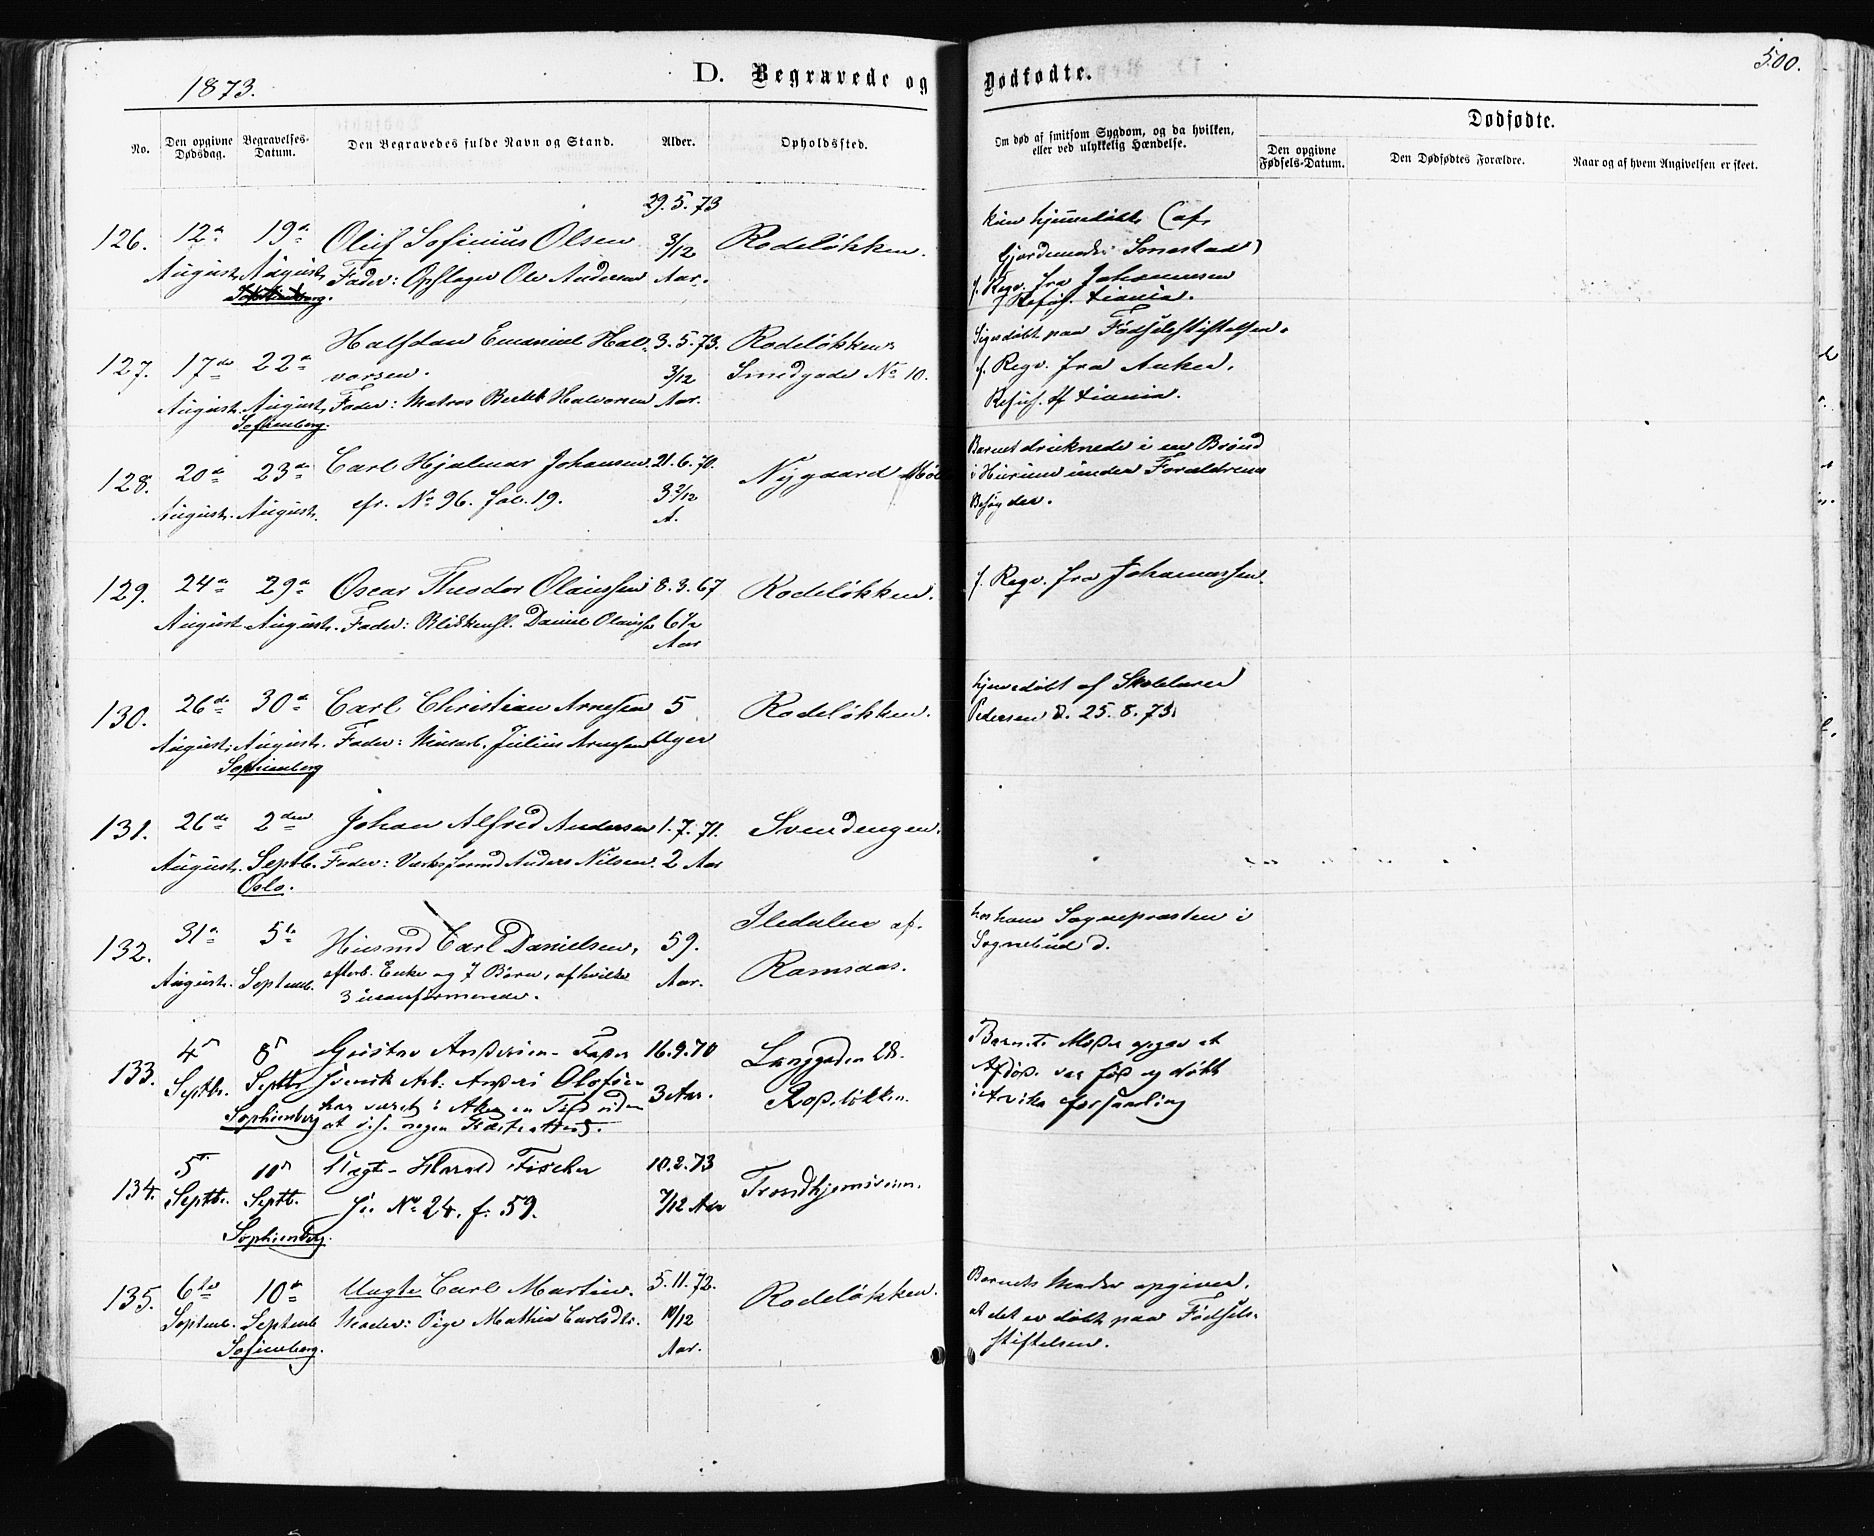 1873.
D. Begravede og Dødfødte.
500.
No.
Den opgivne Dødsdag.
Begravelses-Datum.
Den Begravedes fulde Navn og Stand.
Alder.
Opholdssted.
Om død af smitsom Sygdom, og da hvilken,
eller ved ulykkelig Hændelse.
Dødfødte.
Den opgivne Fødsels-Datum.
Den Dødfødtes Forældre.
Naar og af hvem Angivelsen er skeet.
29. 5. 73
126. 12te 19de Oluf Sofinius Olsen 3/12 Rodeløkken.
August August Fader: Opslager Ole Andersen Aar.
kun hjemmedøbt (af
Gjordemoder Smestad)
f. Regn. fra Johannesen
Halfdan Emanuel Hal- 3. 5. 73. Rodeløkken
127. 17de 22de vorsen. 3/12 Smedgade No 10.
August. August. Fader: Matros Halvorsen Aar.
Sofienberg.
døbt paa Fødselsstiftelsen.
f. Regn. fra Anker.
128. 20de 23de Carl Hjalmar Johansen 21. 6. 70. Nygaard
August. August. cfr. No 96. fol. 19. 3 2/12
A.
Barnet druknede i en Brønd
i Hurum under Forældrenes
Besøg der.
129. 24de 29de Oscar Theodor Olaussen 8. 3. 67 Rodeløkken.
August August. Fader: Blikkensl. Daniel Olaussen 6 1/2
Aar
f. Regn. fra Johannessen.
130. 26de 30de Carl Christian Arnesen 5 Rodeløkken.
August. August. Fader: Julius Arnesen Uger
Sophienberg
hjemmedøbt af Skolelærer
Pedersen d. 25. 8. 73.
131. 26de 2den Johan Alfred Andersen 1. 7. 71. Svendengen.
August. Septb. Fader: Anders Nilsen. 2 Aar
Oslo.
132. 31te 5te Husmd Carl Danielsen, 59. Iledalen af
August. Septemb. efterl. Enke og 7 Børn, af hvilke Aar. Ramsaas.
3 ukonfirmerede.
Sognepresten i
Sognebud d.
133. 4de 8de Gustav Andersen - Fader 16. 9. 70 Langgaden 28.
Septbr. Septbr Svensk Arb. Anders Olofsen 3 Aar. Rodeløkken.
Sophienberg har været i Aker en Tid uden
at
Barnets Moder opgav at
Afdøde var fød og døbt
i Arvika forsamling
134. 5te 10de Uægte Harald Fischer 10. 2. 73 Trondhjemsveien.
Septbr. Septb. No 24. f. 59. 7/12 Aar
Sophienberg.
135. 6te 10de Uægte Carl Martin. 5. 11. 72. Rodeløkken.
Septemb. Septemb Moder: Pige Mathea Carlsdtr. 10/12
Sofienberg. Aar.
Barnets Moder opgiver,
at det er døbt paa Fødsels-
stiftelsen.